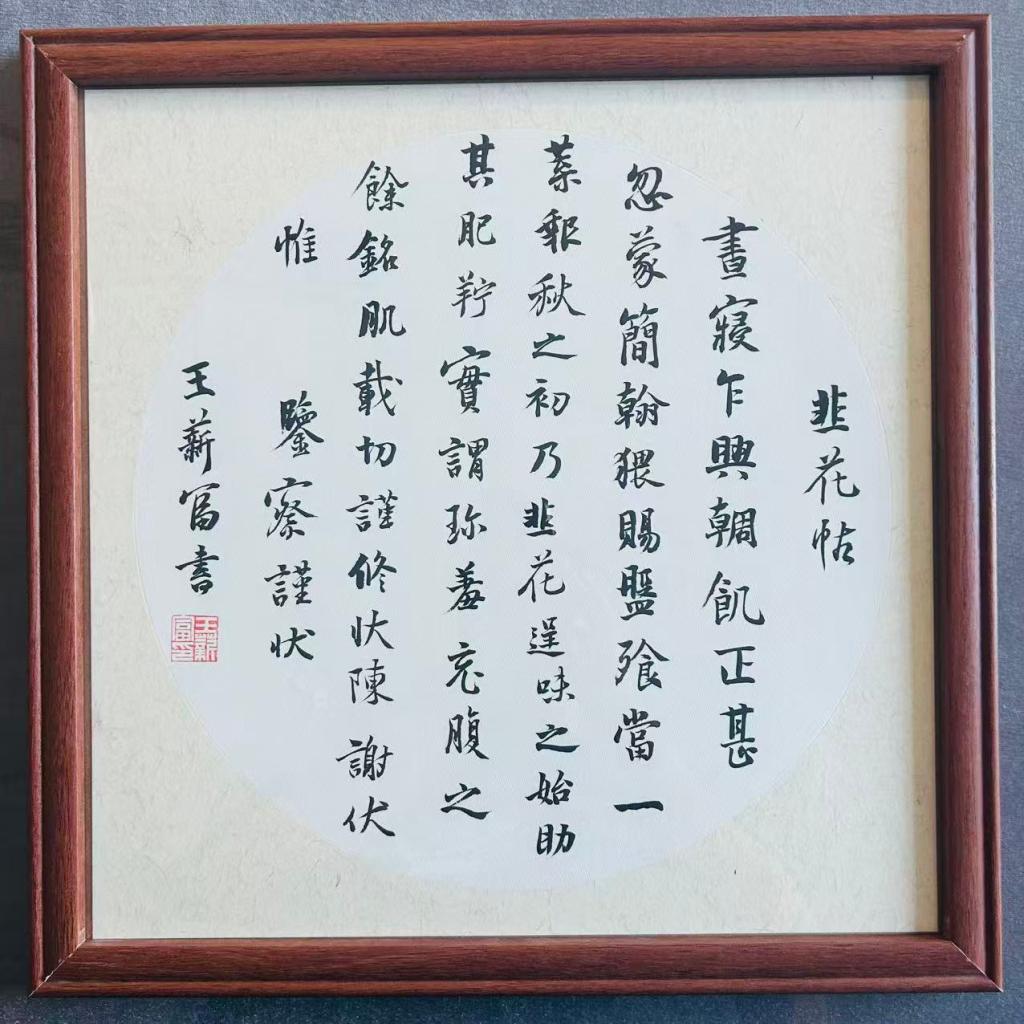 韭花帖
晝寢乍興輖飢正甚
忽蒙簡翰猥賜盤飧當一
葉報秋之初乃韭花逞味之始助
其肥羜實謂珍羞充腹之
餘銘肌載切謹修狀陳謝伏
惟鑒察謹狀
王薪富書
王薪富印